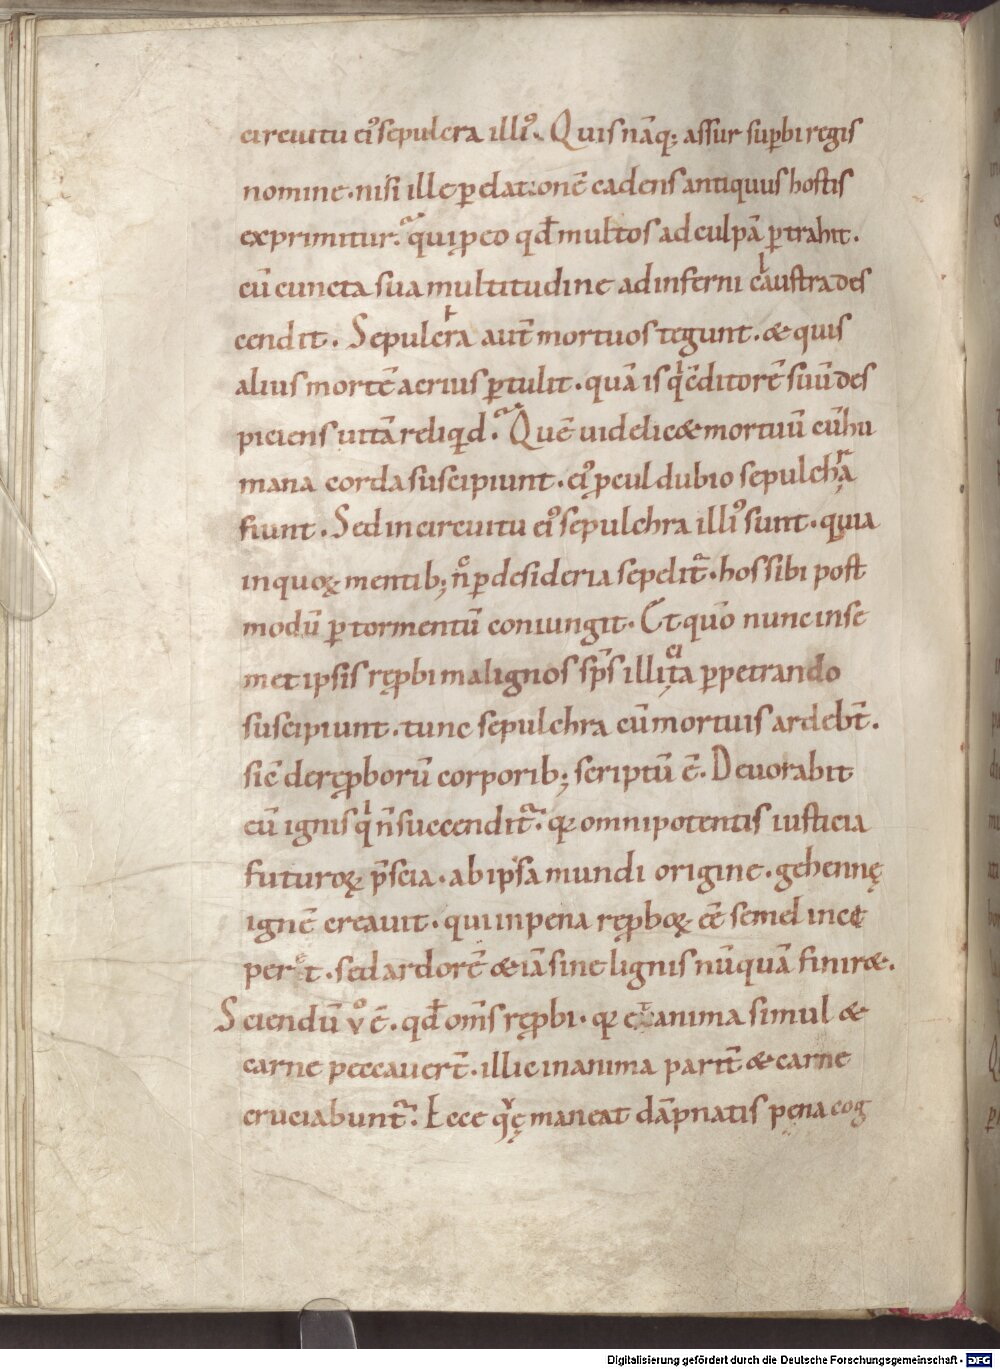 circuitu ei᷒ sepulcra illi᷒. Quis nāq; assur suꝑbi regis
nomine. nisi ille ꝑ elationē cadens antiquus hostis
exprimitur. qui ꝓ eo qđ multos ad culpā ꝑtrahit.
cū cuncta sua multitudine ad inferni claustra des
cendit. Sepulcra aut̄ mortuos tegunt. & quis
alius mortē acrius ꝑtulit. quā is qͥ cditorē suū des
piciens uitā reliqͥd. Quē uidelic& mortuū cū hu
mana corda suscipiunt. ei᷒ ꝓcul dubio sepulchra
fiunt. Sed in circuitu ei᷒ sepulchra illi᷒ sunt. quia
in quoꝝ mentib; n̄c ꝑ desideria sepelit᷑. hos sibi post
modū ꝑ tormentū coniungit. Et quō nunc in se
met ipsis ręꝓbi malignos sp̄s illicita ꝑpetrando
suscipiunt. tunc sepulchra cū mortuis ardeb̄t.
sic̄ de ręꝓborū corporib; scriptū ē. Deuorabit
eū ignis qͥ n̄ succendit᷑. qꝛ omnipotentis iusticia
futuroꝝ p̄scia. ab ipsa mundi origine. gehennę
ignē creauit. qui in pena ręꝓboꝝ eē semel incę
peret. sed ardorē & iā sine lignis nūquā finir&.
Sciendū vͦ ē. qđ om̄s ręꝓbi. qꝛ ex anima simul &
carne peccauer̄t. illic in anima parit̄ & carne
cruciabunt᷑. Ecce qͮę maneat dāpnatis pęna cog
Digitalisierung gefördert durch die Deutsche Forschungsgemeinschaft - DFG